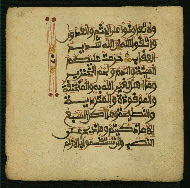 ولا تعاونوا على الاثم والعدوان
واتقوا الله ان الله شديد
العقاب حرمت عليكم
الميتة والدم ولحم الخنزير
وما اهل لغير الله به والمنخنقة
والموقوذة والمتردية
والنطيحة وما اكل السبع
الا ما ذكيتم وما ذبح على
النصب وان تستقسموا